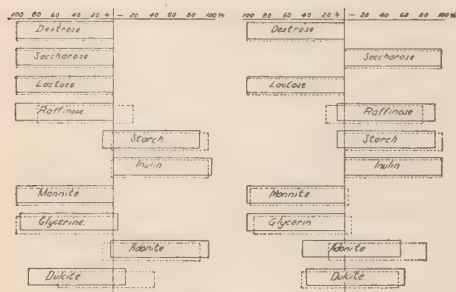 100 80 60 40 20 + - 20 40 60 80 100%
Dextrose
Saccharose
Lactose
Raffinose
Starch
Inulin
Mannite
Glycerine
Adonite
Dulcite
100 80 60 40 20 + - 20 40 60 80 100%
Dextrose
Saccharose
Lactose
Raffinose
Starch
Inulin
Mannite
Glycerin
Adonite
Dulcite